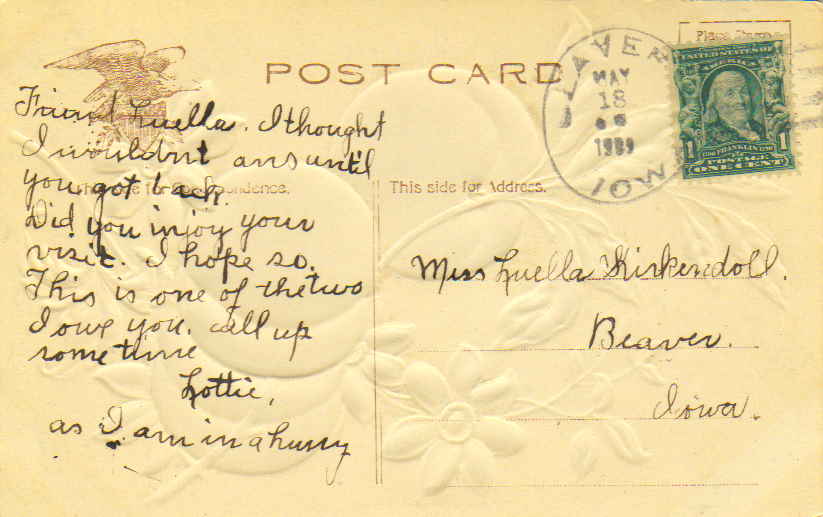 POST CARD
Friend Luella. I thought
I wouldnt ans until
you got back.
Did you injoy your
visit. I hope so.
This is one of the two
I owe you. call up
some time
Lottie,
as I am in a hurry
This side for Correspondence.
This side for Address.
Miss Luella Kirkendoll.
Beaver.
Iowa.
BEAVER
MAY
18
1909
IOWA
Place Stamp
UNITED STATES OF
AMERICA
1706 FRANKLIN 1790
1 1
POSTAGE
ONE CENT